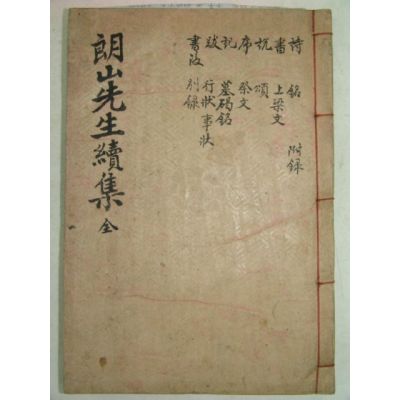 詩 銘 附錄
書 上梁文
說 頌
序 祭文
記 墓碣銘
跋 行狀事狀
別錄
朗山先生續集 全